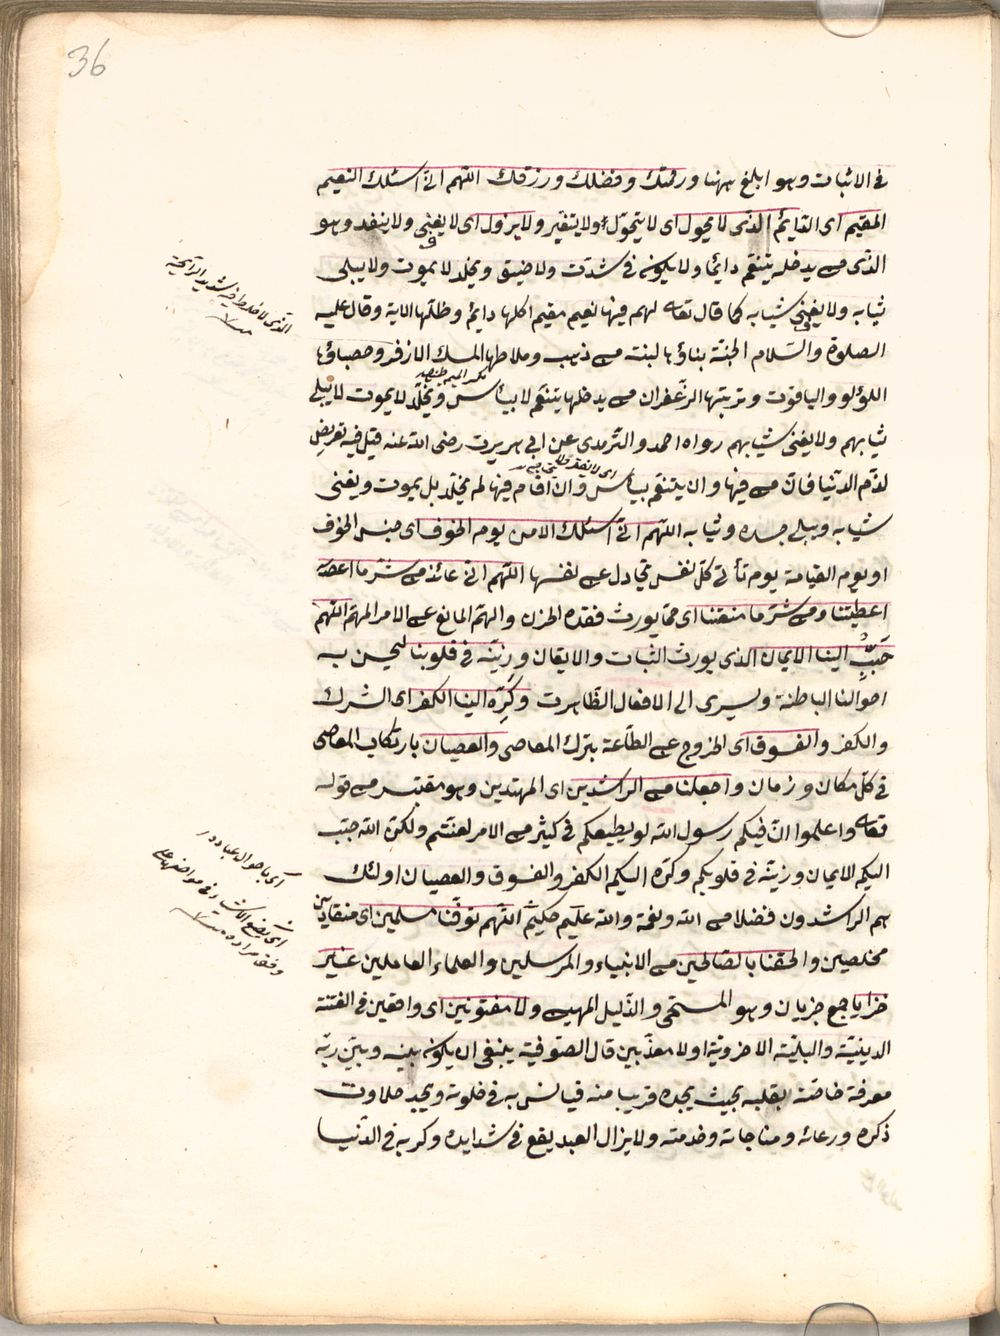 36
فى الاثبات وهو ابلغ ههنا ورحمتك وفضلك ورزقك اللهم انى اسئلك النعيم
المقيم اى القايم الذى لا يحول اى لا يتحول ولا يتغير ولا يزول اى لا يفنى ولا ينفد وهو
الذى من يدخله يتنعم دائما ولا يكون فى شدت ولا ضيق ويخلد لا يموت ولا يبلى
ثيابه ولا يفنى شبابه كما قال تعالى لهم فيها نعيم مقيم اكلها دائم وظلها الاية وقال عليه
الصلوة والسلام الجنة بناؤها لبنة من ذهب وملاطها المسك الازفر وحصباؤها
اللؤلو والياقوت وتربتها الزعفران من يدخلها يتنعم لا يبأس ويخلد لا يموت لا يبلى
ثيابهم ولا يفنى شبابهم رواه احمد والترمدى عن ابى هريرت رضى الله عنه قيل فيه تعريض
لذم الدنيا فان من فيها وان يتنعم يبأس وان اقام فيها لم يخلد بل يموت ويفنى
شبابه ويبلى جسده وثيابه اللهم انى اسئلك الامن يوم الخوف اى جنس الخوف
او يوم القيامة يوم تأتى كل نفس تجادل عن نفسها اللهم انى عائذ من شر ما
اعطيتنا ومن شر ما منعتنا اى مما يورث فقده الحزن والهم المانع عن الامر المهم اللهم
حبب الينا الايمان الذى يورث الثبات والايقان وزينه فى قلوبنا ليحسن به
احوالنا الباطنة ويسرى الى الافعال الظاهرت وكره الينا الكفر اى الشرك
والكفر والفسوق اى الخروج عن الطاعة بترك المعاصى والعصيان بارتكاب المعاصى
فى كل مكان وزمان واجعلنا من الراشدين اى المهتدين وهو مقتبس من قوله
تعالى واعلموا ان فيكم رسول الله لو يطيعكم فى كثير من الامر لعنتم ولكن الله حبب
اليكم الايمان وزينه فى قلوبكم وكره اليكم الكفر والفسوق والعصيان اولئك
هم الراشدون فضلا من الله ونعمة والله عليم حكيم اللهم توفنا مسلمين اى منقادين
مخلصين والحقنا بالصالحين من الانبياء والمرسلين والعلماء العاملين غير
خزايا جمع خزيان وهو المستحى والذليل المهين ولا مفتونين اى واقعين فى الفتنة
الدينية والبلية الاخروية ولا معذبين قال الصوفية ينبغى ان يكون بينه وبين ربه
معرفة خاصة بقلبه بحيث يجده قريبا منه فيانس به فى خلوته ويجد حلاوت
ذكره ودعائه ومناجاته وخدمته ولا يزال العبد يقع فى شدايده وكربه فى الدنيا
الذى لا خلط فيه شديد الرايحة
بكسر الميم
اى باحوال عباده
اى يضع الاشياء فى مواضعها على
وفق مراده